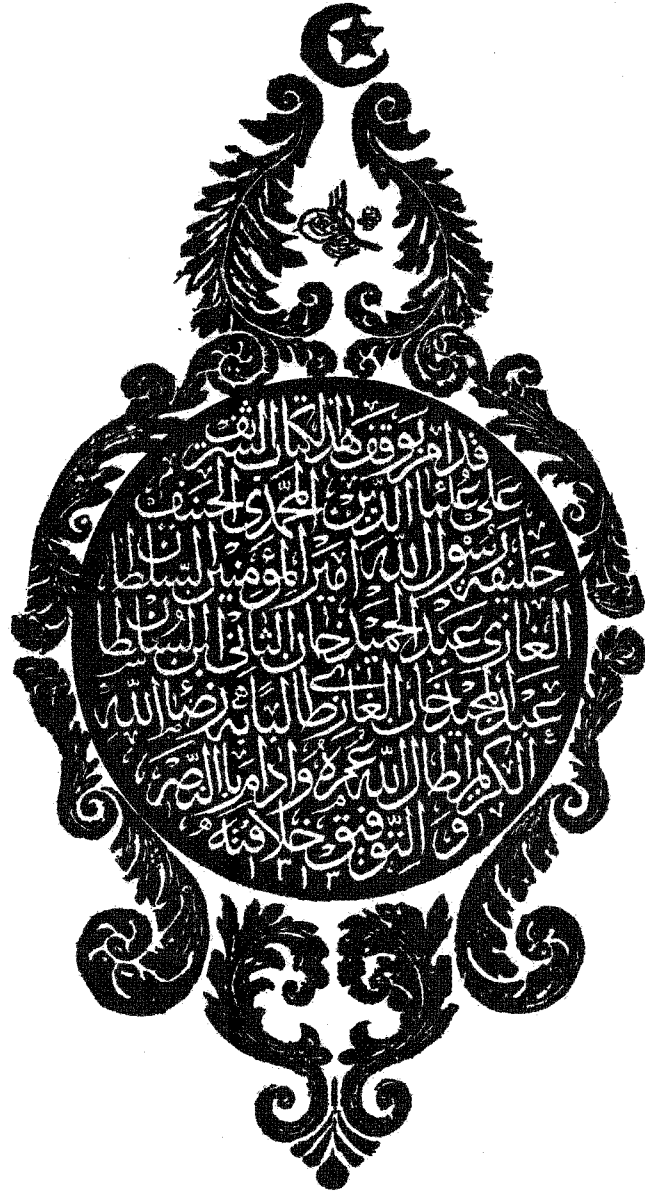 قد امر بوقف هذا الكتاب الشريف
على علماء الدين المحمدى الحنيف
خليفة رسول الله امير المؤمنين السلطان
الغازى عبد الحميد خان الثانى ابن السلطان
عبد المجيد خان الغازى طالبا به رضاء الله
الكريم اطال الله عمره وادام بالنصر
و التوفيق خلافته
١٣١٣